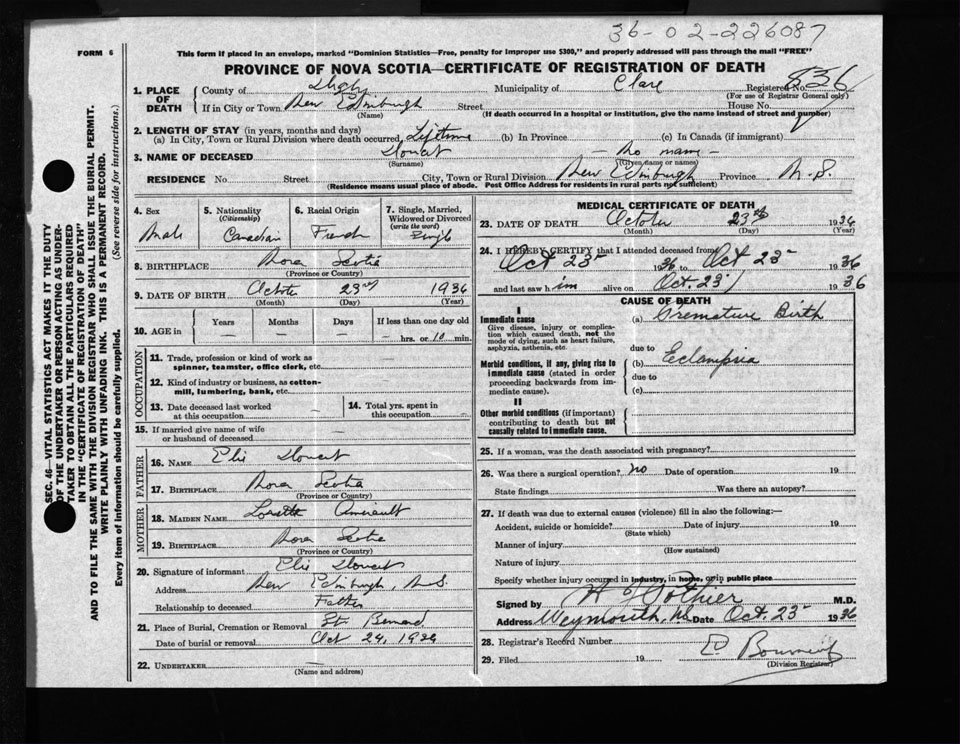 36-02-226087
FORM 6
This form if placed in an envelope, marked "Dominion Statistics—Free, penalty for improper use $300," and properly addressed will pass through the mail "FREE"
PROVINCE OF NOVA SCOTIA—CERTIFICATE OF REGISTRATION OF DEATH
1. PLACE OF DEATH
County of Digby Municipality of Clare Registered No. 836
(For use of Registrar General only)
If in City or Town New Edinburgh Street House No.
(Name) (If death occurred in a hospital or institution, give the name instead of street and number)
2. LENGTH OF STAY (in years, months and days)
(a) In City, Town or Rural Division where death occurred Lifetime (b) In Province (c) In Canada (if immigrant)
3. NAME OF DECEASED Doucet — No name —
(Surname) (Given name or names)
RESIDENCE No Street City, Town or Rural Division New Edinburgh Province N.S.
(Residence means usual place of abode. Post Office Address for residents in rural parts not sufficient)
4. Sex Male
5. Nationality (Citizenship) Canadian
6. Racial Origin French
7. Single, Married, Widowed or Divorced (write the word) Single
8. BIRTHPLACE Nova Scotia
(Province or Country)
9. DATE OF BIRTH October 23rd 1936
(Month) (Day) (Year)
10. AGE in Years Months Days If less than one day old
— hrs. or 10 min.
OCCUPATION
11. Trade, profession or kind of work as spinner, teamster, office clerk, etc. —
12. Kind of industry or business, as cotton-mill, lumbering, bank, etc. —
13. Date deceased last worked at this occupation —
14. Total yrs. spent in this occupation —
15. If married give name of wife or husband of deceased —
FATHER
16. NAME Elie Doucet
17. BIRTHPLACE Nova Scotia
(Province or Country)
MOTHER
18. MAIDEN NAME Loretta Amirault
19. BIRTHPLACE Nova Scotia
(Province or Country)
20. Signature of informant Elie Doucet
Address New Edinburgh, N.S.
Relationship to deceased Father
21. Place of Burial, Cremation or Removal St. Bernard
Date of burial or removal Oct 24, 1936
22. UNDERTAKER —
(Name and address)
MEDICAL CERTIFICATE OF DEATH
23. DATE OF DEATH October 23rd 1936
(Month) (Day) (Year)
24. I HEREBY CERTIFY that I attended deceased from
Oct 23- 1936 to Oct 23- 1936
and last saw h im alive on Oct. 23- 1936
CAUSE OF DEATH
I
Immediate cause (a) Premature Birth
Give disease, injury or complication which caused death, not the mode of dying, such as heart failure, asphyxia, asthenia, etc.
due to
Morbid conditions, if any, giving rise to immediate cause (stated in order proceeding backwards from immediate cause).
(b) Eclampsia
due to
(c)
II
Other morbid conditions (if important) contributing to death but not causally related to immediate cause.
25. If a woman, was the death associated with pregnancy?
26. Was there a surgical operation? No Date of operation 19
State findings Was there an autopsy?
27. If death was due to external causes (violence) fill in also the following:—
Accident, suicide or homicide? Date of injury 19
(State which)
Manner of injury
(How sustained)
Nature of injury
Specify whether injury occurred in industry, in home, or in public place
Signed by Pothier M.D.
Address Weymouth, NS Date Oct. 23- 1936
28. Registrar's Record Number
29. Filed 19
(Division Registrar)
SEC. 46—VITAL STATISTICS ACT MAKES IT THE DUTY
OF THE UNDERTAKER OR PERSON ACTING AS UNDER-
TAKER TO OBTAIN ALL THE PARTICULARS REQUIRED
IN THE "CERTIFICATE OF REGISTRATION OF DEATH"
AND TO FILE THE SAME WITH THE DIVISION REGISTRAR WHO SHALL ISSUE THE BURIAL PERMIT.
WRITE PLAINLY WITH UNFADING INK. THIS IS A PERMANENT RECORD.
Every item of information should be carefully supplied. (See reverse side for instructions.)